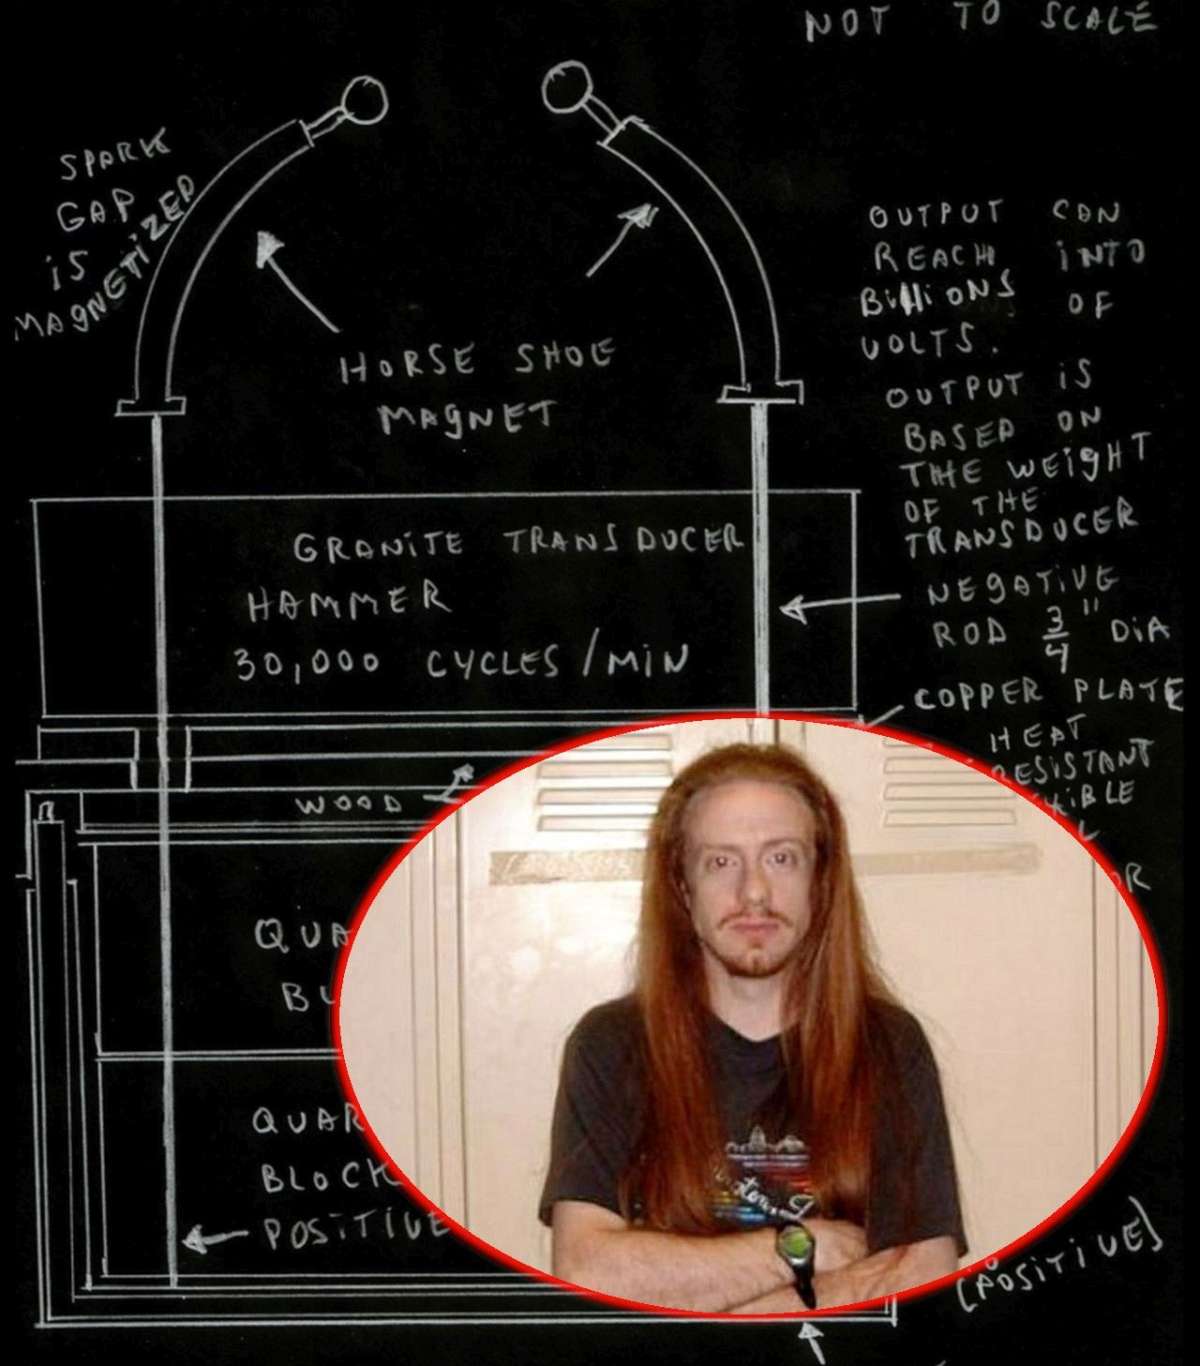 NOT TO SCALE
SPARK
GAP
iS
MAGNETIZED
HORSE SHOE
MAGNET
OUTPUT CAN
REACH iNTO
BillioNS OF
VOLTS.
OUTPUT iS
BASED ON
THE WEigHT
OF THE
TRANSDUCER
GRANiTE TRANSDUCER
HAMMER
30,000 CYCLES/MiN
NEgATiVE
ROD 3/4" DiA
COPPER PLATE
HEAT
RESiSTANT
WOOD
BLOCK
POSiTiVE
(POSiTiVE)